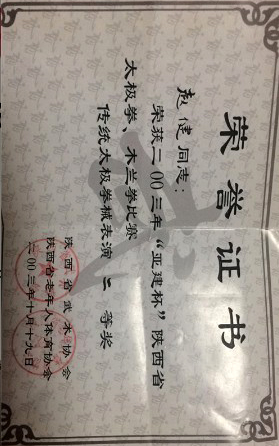 荣誉证书
赵健同志：
荣获二00三年“亚建杯”陕西省
太极拳、木兰拳比赛
传统太极拳械表演 二 等奖
陕西省武术协会
陕西省老年人体育协会
二00三年十月十九日